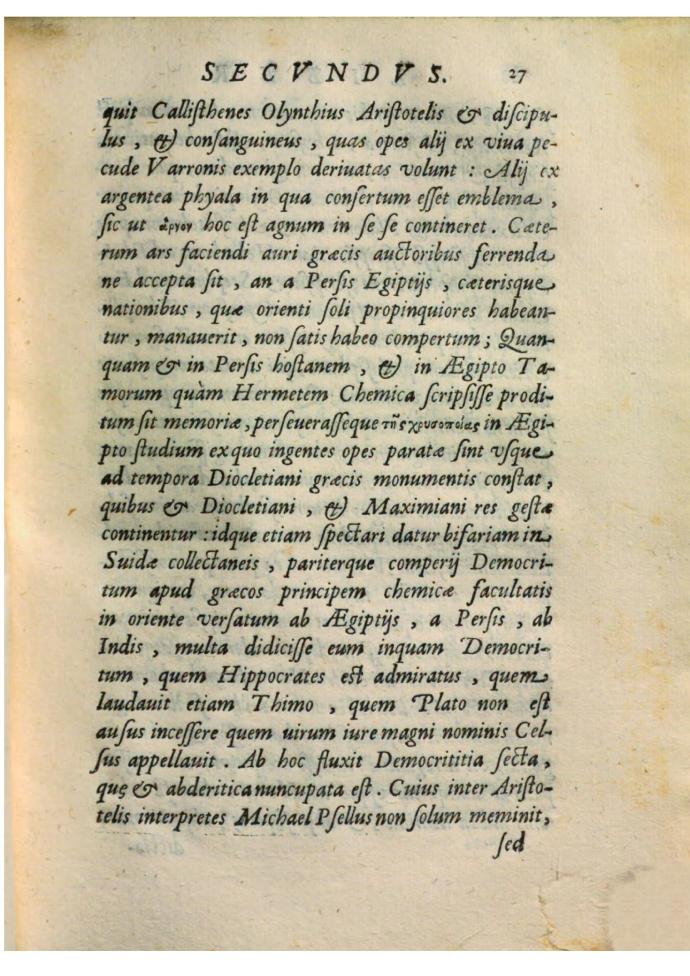 SECVNDVS. 27
quit Callisthenes Olynthius Aristotelis & discipu-
lus, & consanguineus, quas opes alij ex viua pe-
cude Varronis exemplo deriuatas volunt : Alij ex
argentea phyala in qua consertum esset emblema,
sic ut ἄργον hoc est agnum in se se contineret. Cæte-
rum ars faciendi auri græcis auctoribus ferrenda
ne accepta sit, an a Persis Egiptijs, cæterisque
nationibus, quæ orienti soli propinquiores habean-
tur, manauerit, non satis habeo compertum; Quan-
quam & in Persis hostanem, & in Ægipto Ta-
morum quàm Hermetem Chemica scripsisse prodi-
tum sit memoriæ, perseuerasseque τῆς χρυσοποίας in Ægi-
pto studium ex quo ingentes opes paratæ sint vsque
ad tempora Diocletiani græcis monumentis constat,
quibus & Diocletiani, & Maximiani res gestæ
continentur : idque etiam spectari datur bifariam in
Suidæ collectaneis, pariterque comperij Democri-
tum apud græcos principem chemicæ facultatis
in oriente versatum ab Ægiptijs, a Persis, ab
Indis, multa didicisse eum inquam Democri-
tum, quem Hippocrates est admiratus, quem
laudauit etiam Thimo, quem Plato non est
ausus incessere quem uirum iure magni nominis Cel-
sus appellauit. Ab hoc fluxit Democrititia secta,
quę & abderitica nuncupata est. Cuius inter Aristo-
telis interpretes Michael Psellus non solum meminit,
sed